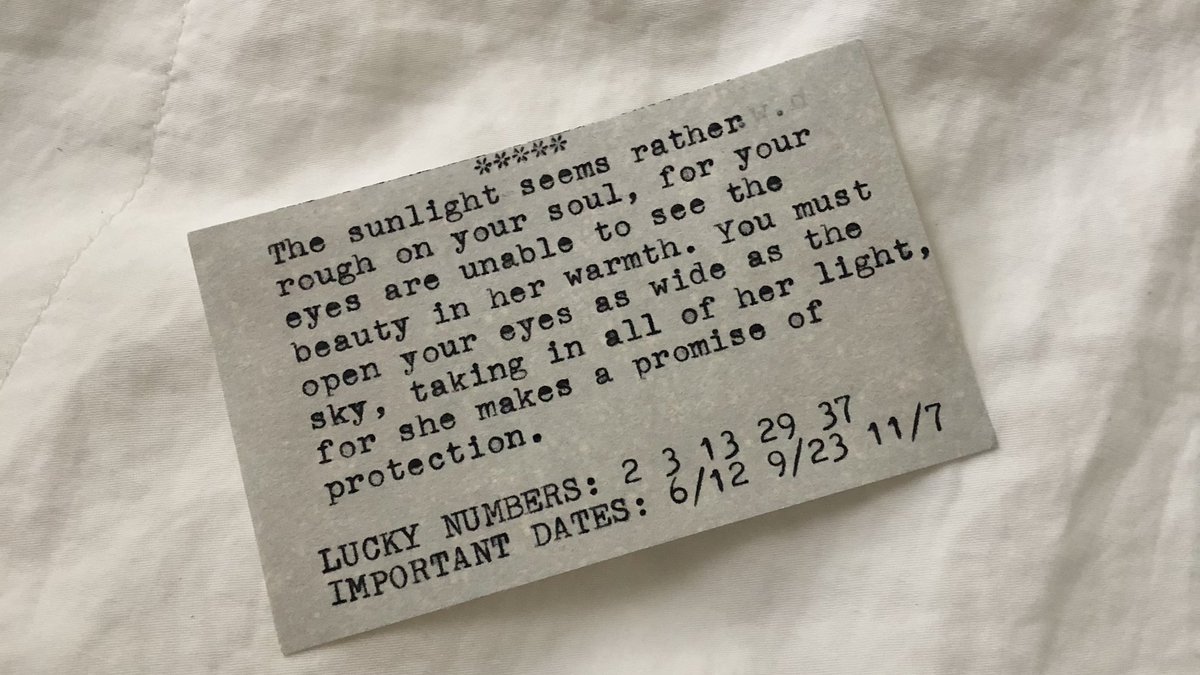 *****
The sunlight seems rather
rough on your soul, for your
eyes are unable to see the
beauty in her warmth. You must
open your eyes as wide as the
sky, taking in all of her light,
for she makes a promise of
protection.
LUCKY NUMBERS: 2 3 13 29 37
IMPORTANT DATES: 6/12 9/23 11/7